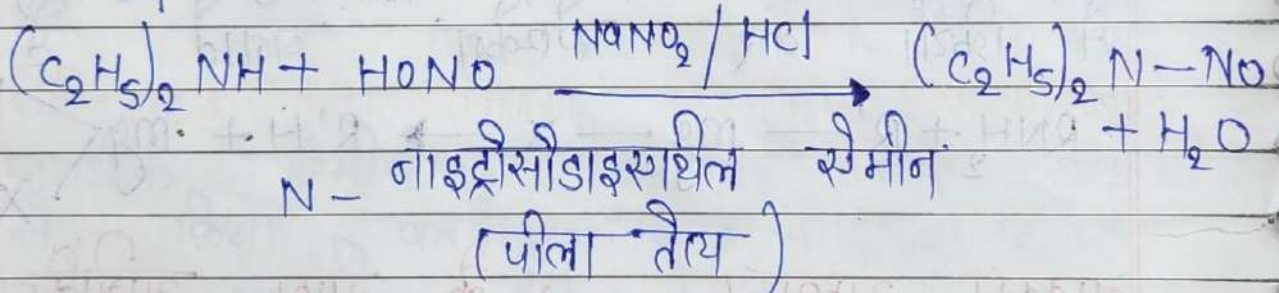 (C₂H₅)₂ NH + HONO NaNO₂ / HCl → (C₂H₅)₂ N – NO
+ H₂O
N - नाइट्रोसोडाइएथिल ऐमीन
(पीला तैत्य)